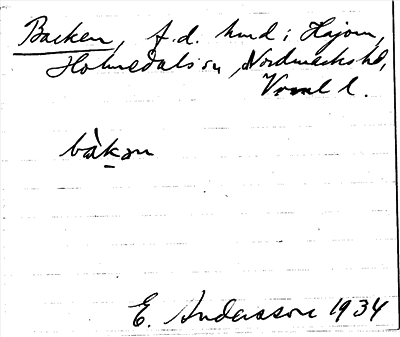 Backen, f.d. hmd i Håjom,
Holmedals sn, Nordmarks hd,
Värml l.
bàkən
E. Andersson 1934